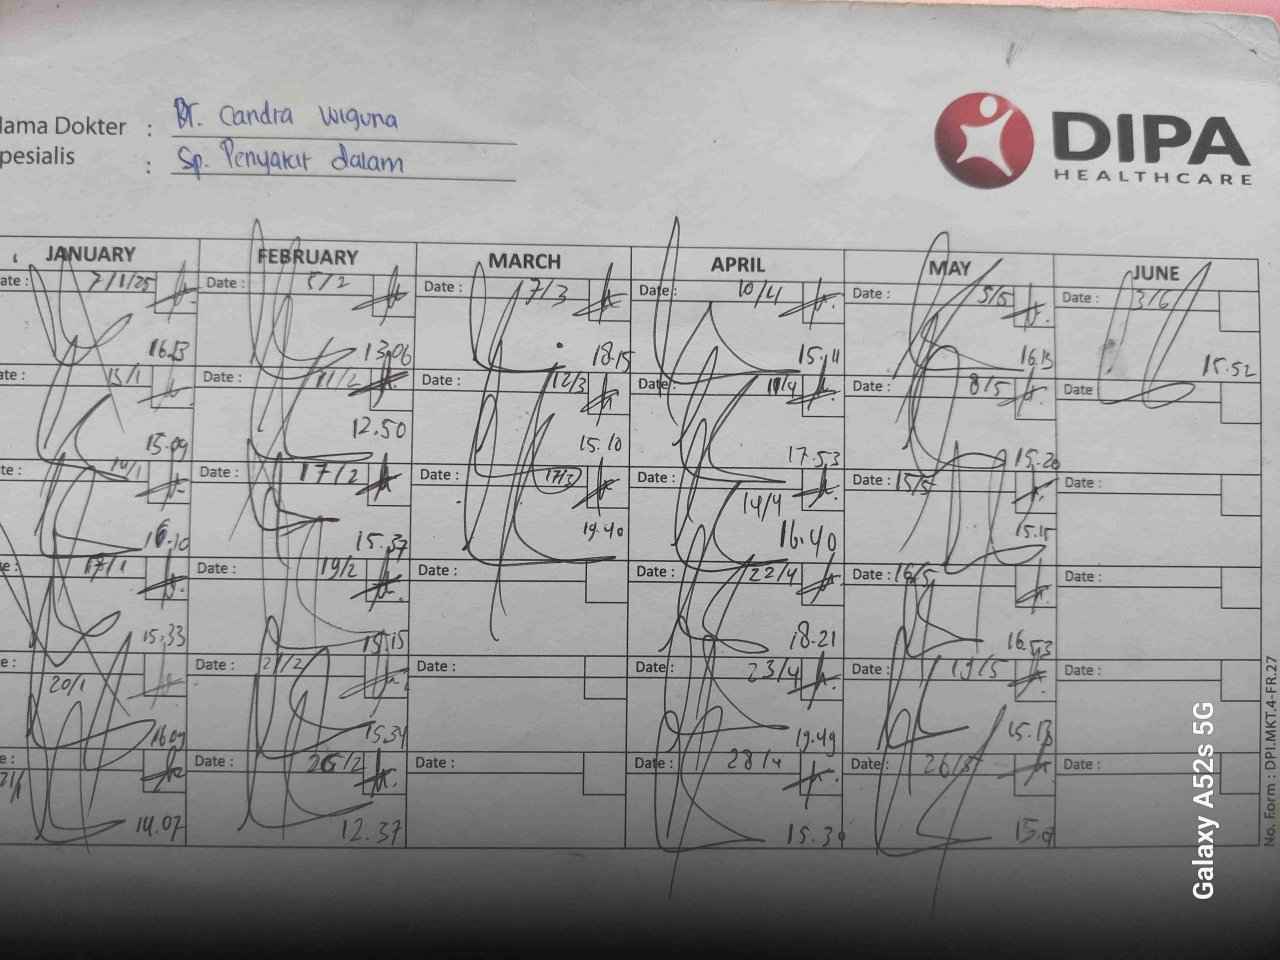 lama Dokter : Dr. Candra Wiguna
pesialis : Sp. Penyakit dalam
DIPA
HEALTHCARE
JANUARY FEBRUARY MARCH APRIL MAY JUNE
ate: 7/1/25 Date: 5/2 Date: 7/3 Date: 10/4 Date: 5/5 Date: 3/6
16.13 13.06 18.15 15.11 16.15 15.52
ate: 13/1 Date: 11/2 Date: 12/3 Date: 11/4 Date: 8/5 Date
15.09 12.50 15.10 17.53 15.20
te: 14/1 Date: 17/2 17/3 Date: 14/4 Date: 15/5 Date:
16.10 15.37 19.40 16.40 15.15
e: 17/1 Date: 19/2 Date: Date: 22/4 Date: 16/5 Date:
15.33 15.15 18.21 16.53
e: 20/1 Date: 21/2 Date: Date: 23/4 Date: 19/5 Date:
16.09 15.34 19.49 15.13
e: 21/1 Date: 26/2 Date: Date: 28/4 Date: 26/5 Date:
14.07 12.37 15.39
No. Form : DPI.MKT.4-FR.27
Galaxy A52s 5G